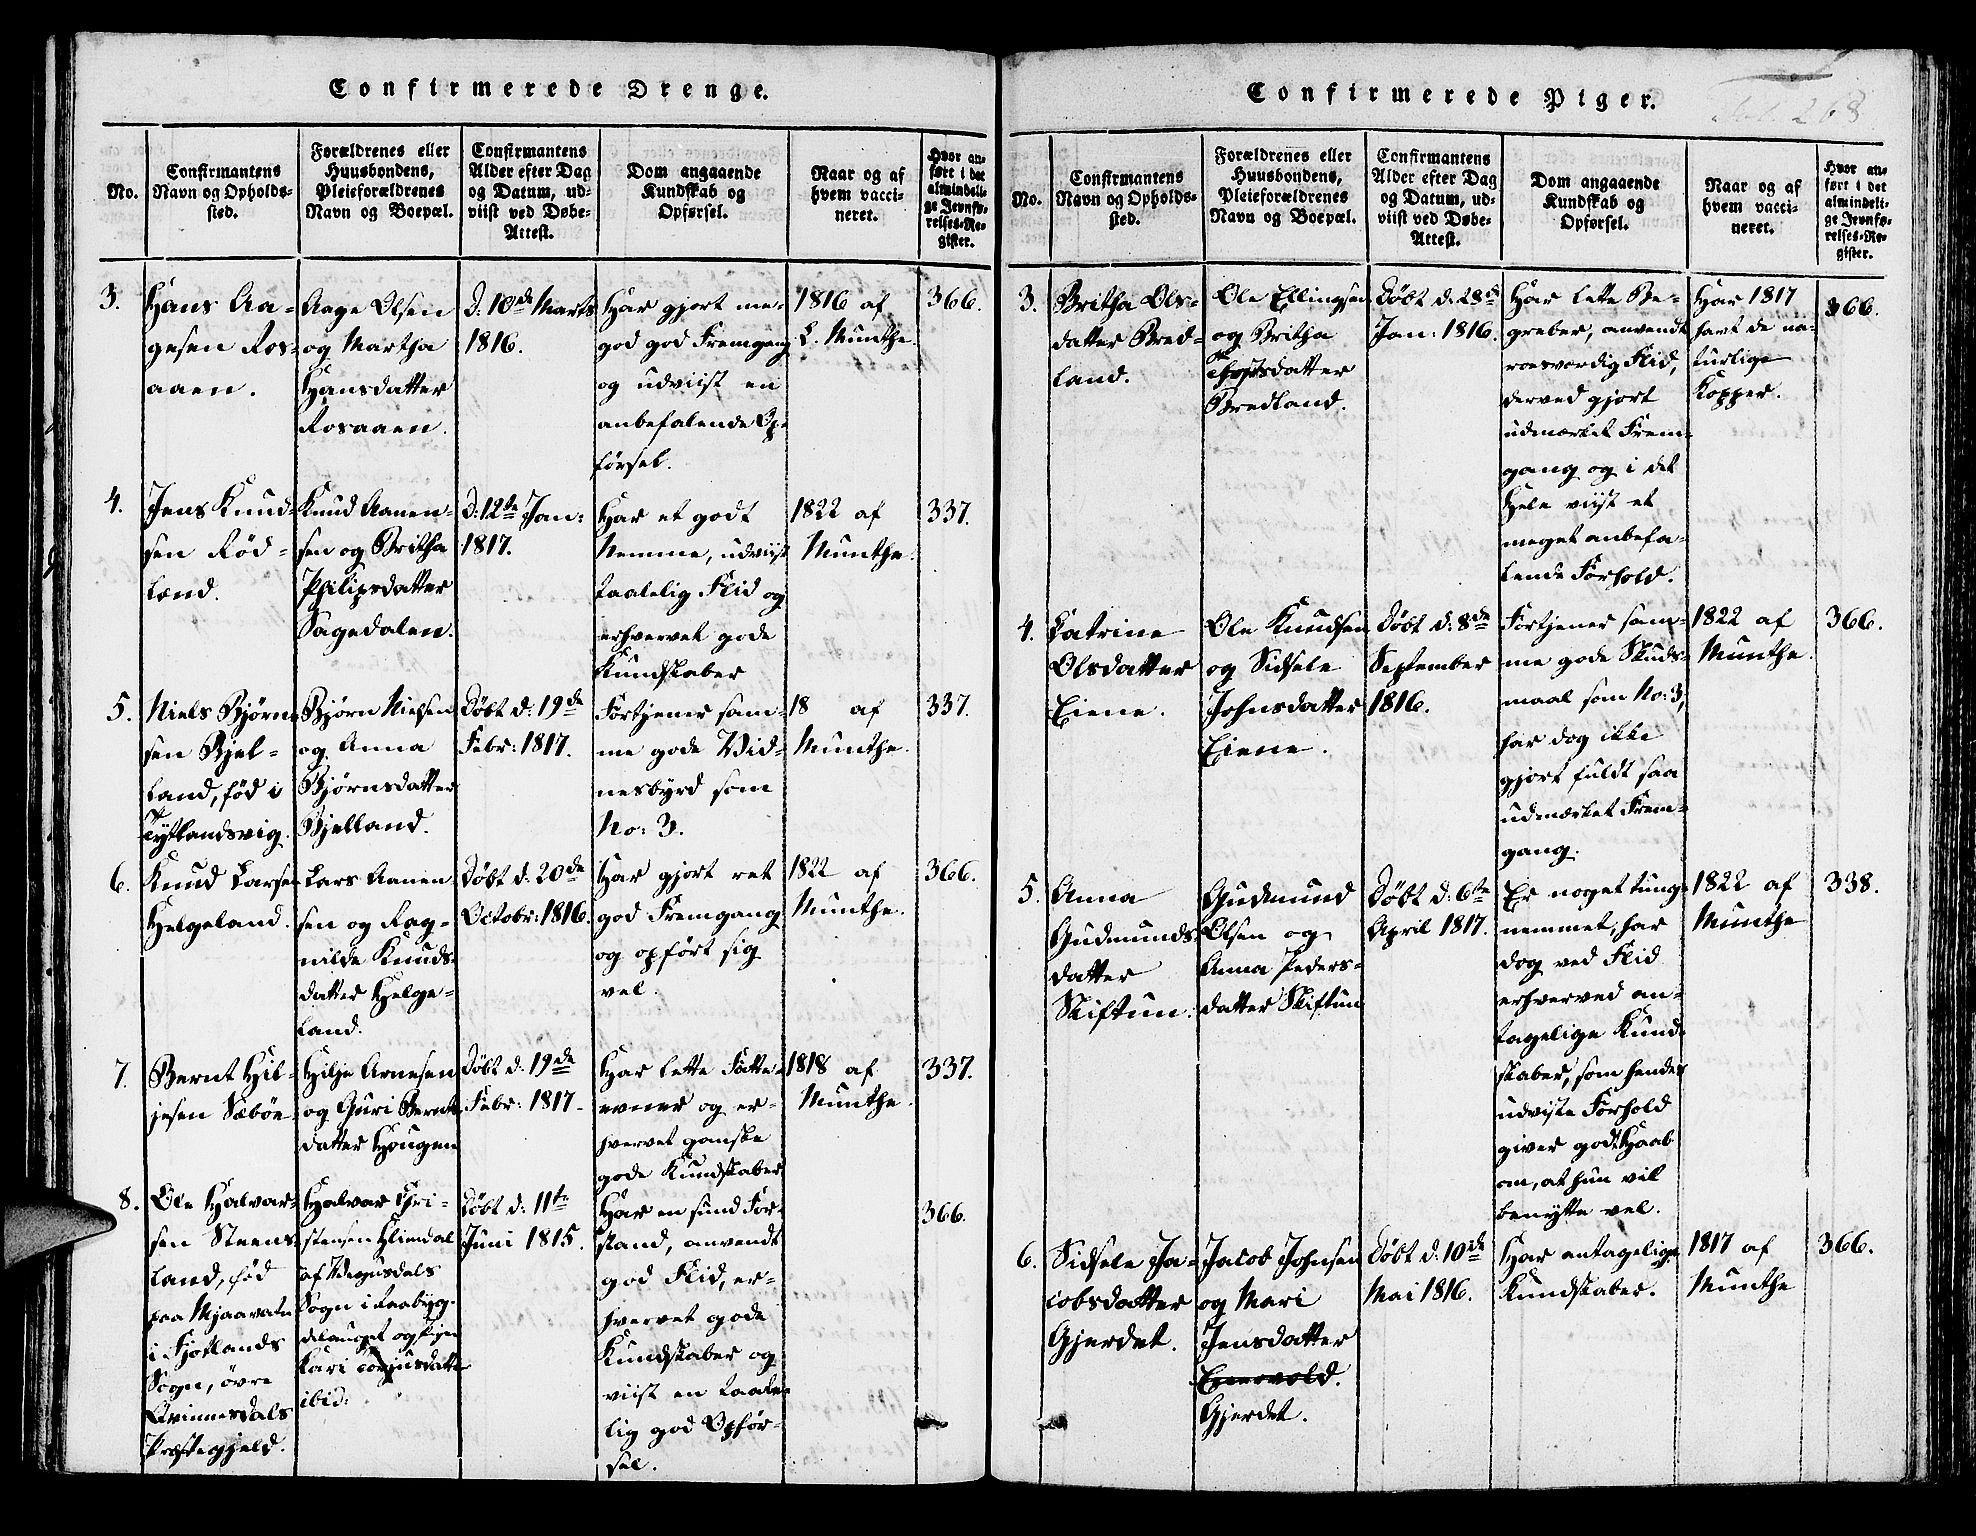 Confirmerede Drenge.
No.
Confirmantens
Navn og Opholds-
sted.
Forældrenes eller
Huusbondens,
Pleieforældrenes
Navn og Boepæl.
Confirmantens
Alder efter Dag
og Datum, ud-
viist ved Døbe-
Attest.
Dom angaaende
Kundskab og
Opførsel.
Naar og af
hvem vacci-
neret.
Hvor an-
ført i det
almindeli-
ge Jevnfø-
relses-Re-
gister.
3.
Hans Aa-
gesen Ros-
aaen.
Aage Olsen
og Martha
Hansdatter
Rosaaen.
D. 10de Marts
1816.
Har gjort me-
god god Fremgang
og udviist en
anbefalende Op-
førsel.
1816 af
L. Munthe.
366.
4.
Jens Knud-
sen Rød-
land.
Knud Aanen-
sen og Britha
Philipsdatter
Sagedalen.
D: 12te Jan:
1817.
Har et godt
Nemme, udviist
taalelig Flid og
erhvervet gode
Kundskaber
1822 af
Munthe.
337.
5.
Niels Bjørn-
sen Bjel-
land, fød i
Tytlandsvig.
Bjørn Nielsen
og Anna
Bjørnsdatter
Bjelland.
Døbt d: 19de
Febr: 1817.
Fortjener sam-
me gode Vid-
nesbyrd som
No: 3.
18 af
Munthe.
337.
6.
Knud Larsen
Helgeland.
Lars Aanen-
sen og Rag-
nilde Knuds-
datter Helge-
land.
Døbt d: 20de
Octobr: 1816.
Har gjort ret
god Fremgang
og opført sig
vel.
1822 af
Munthe.
366.
7.
Bernt Hil-
jesen Sæbøe
Hilje Arnesen
og Guri Bernts-
datter Hougen
Døbt d: 19de
Febr: 1817.
Har lette Fatte-
evner og er-
hvervet ganske
gode Kundskaber
1818 af
Munthe.
337.
8.
Ole Halvor-
sen Steens-
land, fød
paa Mjaavatn
i Fjotlands
Sogn, øvre
Qvinnesdals
Præstegjeld.
Halvor Chri-
stensen Hliendal
af Vegusdals
Sogn i Raabyg-
delauget og Pigen
Kari Torjusdatter
ibid:
Døbt d: 11te
Juni 1815.
Har en sund For-
stand, anvendt
god Flid, er-
hvervet gode
Kundskaber og
viist en taale-
lig god Opfør-
sel.
366.
Confirmerede Piger.
Fol. 268
No.
Confirmantens
Navn og Opholds-
sted.
Forældrenes eller
Huusbondens,
Pleieforældrenes
Navn og Boepæl.
Confirmantens
Alder efter Dag
og Datum, ud-
viist ved Døbe-
Attest.
Dom angaaende
Kundskab og
Opførsel.
Naar og af
hvem vacci-
neret.
Hvor an-
ført i det
almindeli-
ge Jevnfø-
relses-Re-
gister.
3.
Britha Ols-
datter Bred-
land.
Ole Ellingsen
og Britha
Bredland.
Døbt d: 28de
Jan: 1816.
Har lette Be-
greber, anvendt
roesværdig Flid,
derved gjort
udmærket Frem-
gang og i det
Hele viist et
meget anbefa-
lende Forhold.
Har 1817
havt de na-
turlige
Kopper.
366.
4.
Catrine
Olsdatter
Eiene.
Ole Knudsen
og Sidsele
Johnsdatter
Eiene.
Døbt d: 8de
September
1816.
Fortjener sam-
me gode Skuds-
maal som No: 3,
har dog ikke
gjort fuldt saa
udmærket Frem-
gang.
1822 af
Munthe.
366.
5.
Anna
Gudmunds-
datter
Skiftun.
Gudmund
Olsen og
Anna Peders-
datter Skiftun
Døbt d: 6te
April 1817.
Er noget tung-
nemmet, har
dog ved Flid
erhverved an-
tagelige Kund-
skaber, som hendes
udviste Forhold
giver godt Haab
om, at hun vil
benytte vel.
1822 af
Munthe
338.
6.
Sidsele Ja-
cobsdatter
Gjerdet.
Jacob Johnsen
og Mari
Jensdatter
Gjerdet.
Døbt d. 10de
Mai 1816.
Har antagelige
Kundskaber.
1817 af
Munthe
366.